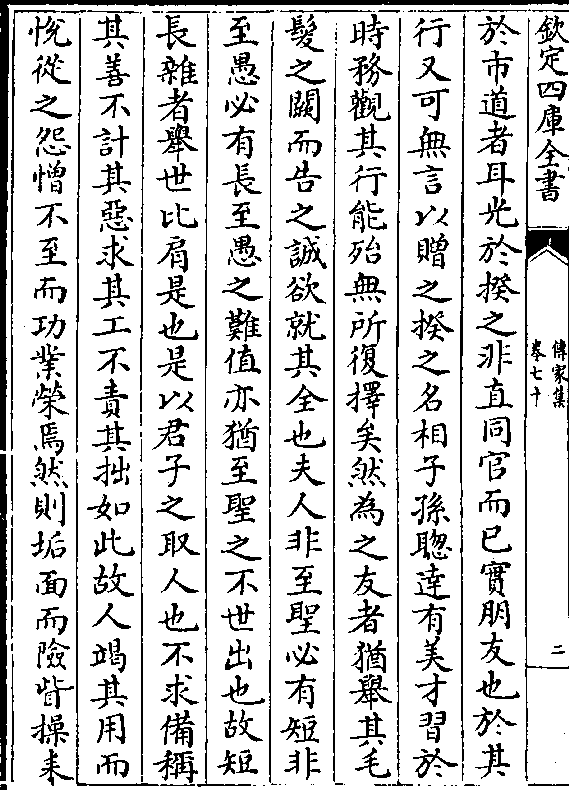 欽定四庫全書
傳家集
卷七十
二
於市道者耳光於揆之非直同官而已實朋友也於其
行又可無言以贈之揆之名相子孫聦達有美才習於
時務觀其行能殆無所復擇矣然為之友者猶舉其毛
髮之闕而告之誠欲就其全也夫人非至聖必有短非
至愚必有長至愚之難值亦猶至聖之不世出也故短
長雜者舉世比肩是也是以君子之取人也不求備稱
其善不計其惡求其工不責其拙如此故人竭其用而
悅從之怨憎不至而功業榮焉然則垢面而險眥操耒